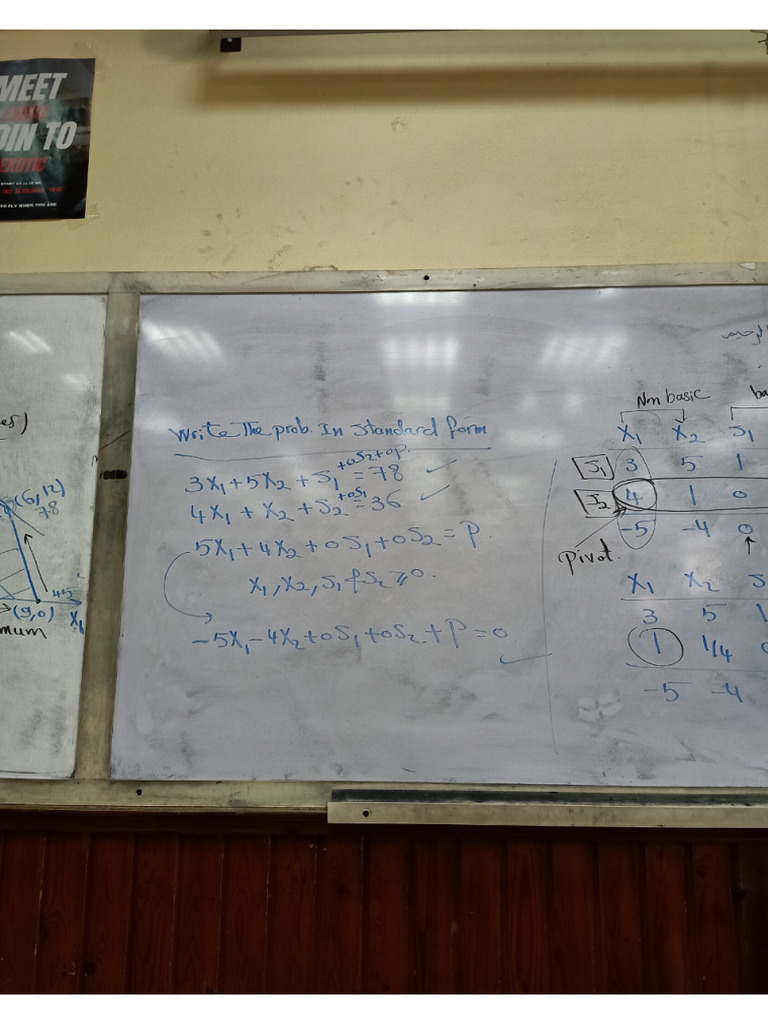 MEET
OIN TO
EXOTIC
TO FLY WHEN YOU ARE
es)
(6,12)
78
(9,0)
X₁
mum
Write The prob. In Standard form
3X₁+5X₂+S₁+0S₂+0P=78 ✓
4X₁+X₂+S₂+0S₁=36 ✓
5X₁+4X₂+0S₁+0S₂=P
X₁,X₂,S₁&S₂≥0.
-5X₁-4X₂+0S₁+0S₂+P=0 ✓
Non basic ba
X₁ X₂ S₁
S₁ 3 5 1
S₂ 4 1 0
-5 -4 0
pivot.
X₁ X₂ S
3 5 1
1 1/4
-5 -4